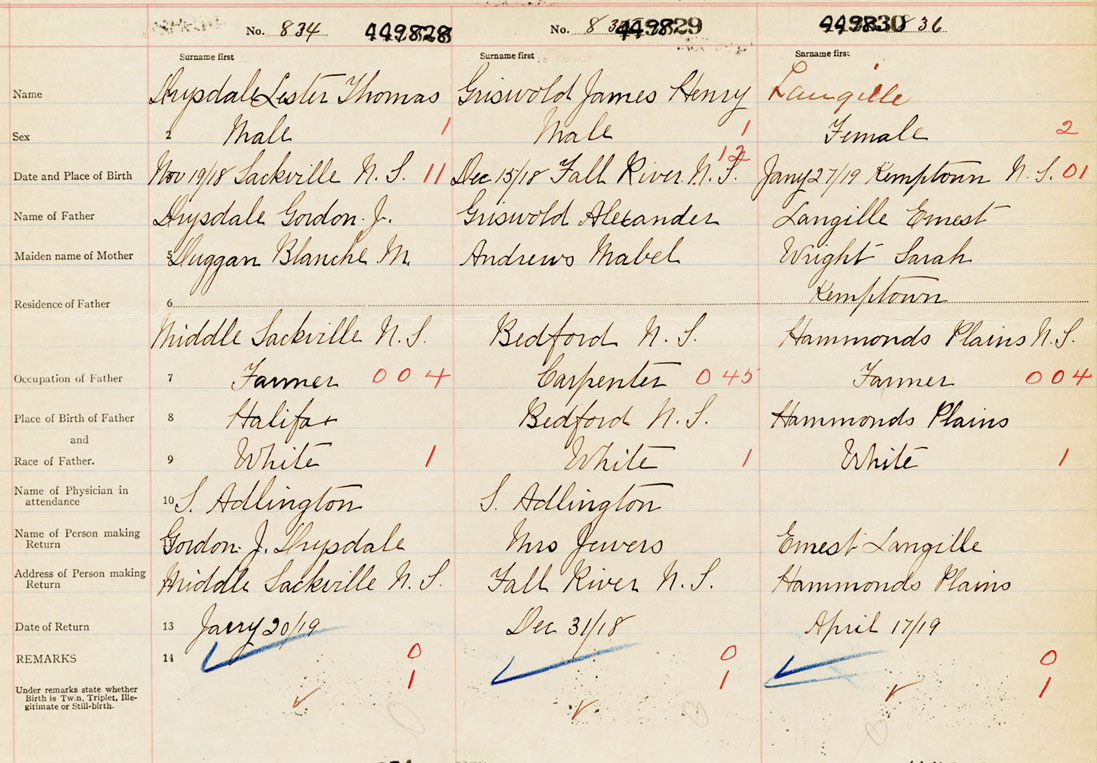 No. 834 449828 No. 835 449829 449830 836
Surname first Surname first Surname first
Name Drysdale Lester Thomas Griswold James Henry Langille
Sex 2 Male 1 Male 1 Female 2
12
Date and Place of Birth Nov 19/18 Sackville N. S. 11 Dec 15/18 Fall River N. S. Jany 27/19 Kemptown N. S. 01
Name of Father Drysdale Gordon J. Griswold Alexander Langille Ernest
Maiden name of Mother 5 Duggan Blanche M. Andrews Mabel Wright Sarah
Kemptown
Residence of Father 6
Middle Sackville N. S. Bedford N. S. Hammonds Plains N. S.
Occupation of Father 7 Farmer 004 Carpenter 045 Farmer 004
Place of Birth of Father 8 Halifax Bedford N. S. Hammonds Plains
and
Race of Father. 9 White 1 White 1 White 1
Name of Physician in
attendance 10 S. Adlington S. Adlington
Name of Person making
Return Gordon J. Drysdale Mrs Jewers Ernest Langille
Address of Person making
Return Middle Sackville N. S. Fall River N. S. Hammonds Plains
Date of Return 13 Janry 20/19 Dec 31/18 April 17/19
REMARKS 14 0 0 0
1 1 1
Under remarks state whether
Birth is Twn, Triplet, Ille-
gitimate or Still-birth.